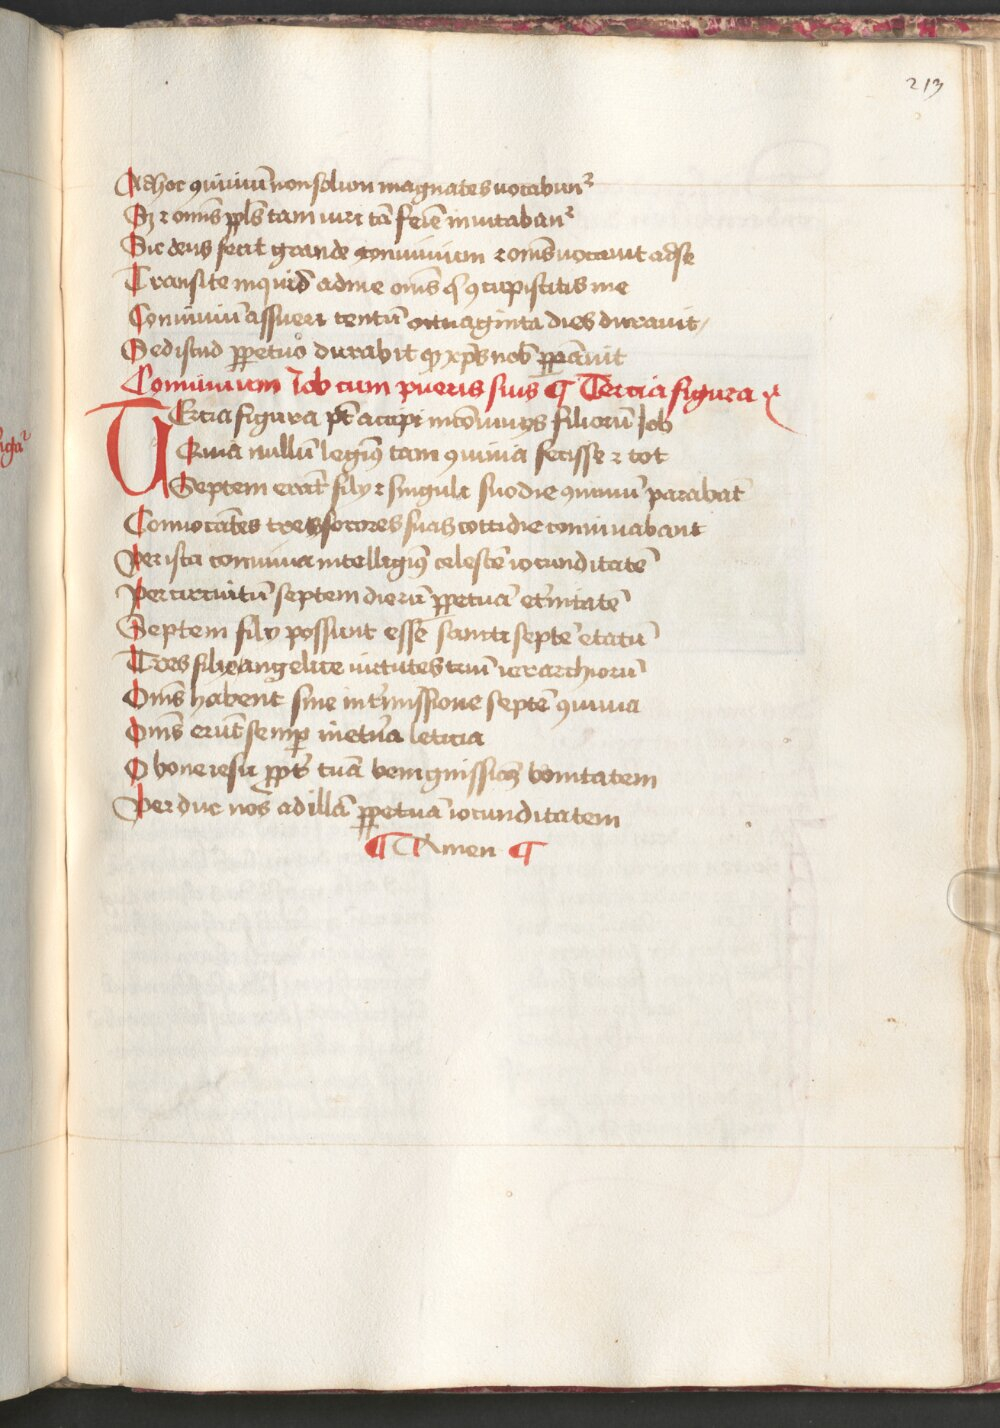 213
Ad hoc ꝯuiuiū non solum magnates vocabunt᷑
Sꝫ ⁊ om̄s ppl̄s tam viri tā feīe inuitaban᷑
Sic deus fecit grande conuiuium ⁊ om̄s vocauit ad se
Transite inquid ad me om̄s q̄ ꝯcupiscitis me
Conuiuiū assueri centū octuaginta dies durauit
Sed istud ꝑpetuo durabit qḍ xp̄s nob̄ p̄parauit
Conuiuium Job cum pueris suis ¶ Tercia figura
TErcia figura pōt accipi in cōuiuijs filiorū Job
Quia nullū legim᷑ tam ꝯuiuia fecisse ⁊ tot
Septem erāt filij ⁊ singuli suo die ꝯuiuiū parabāt
Conuocātes tres sorores suas cottidie conuiuabant
Per ista conuiuia intelligim᷑ celestē iocunditatē
Per circuitū septem dierū ꝑpetuā et̄nitatē
Septem filij possunt esse sancti septē etatū
Tres filie angelice virtutes triū ierarchiorū
Om̄s habent sine int̄missione septē ꝯuiuia
Om̄s erūt semꝑ in et̄na leticia
O bone iesu ꝓpt̄ tuā benignissimā bonitatem
Per duc nos ad illā ꝑpetuā iocunditatem
¶ Amen ¶